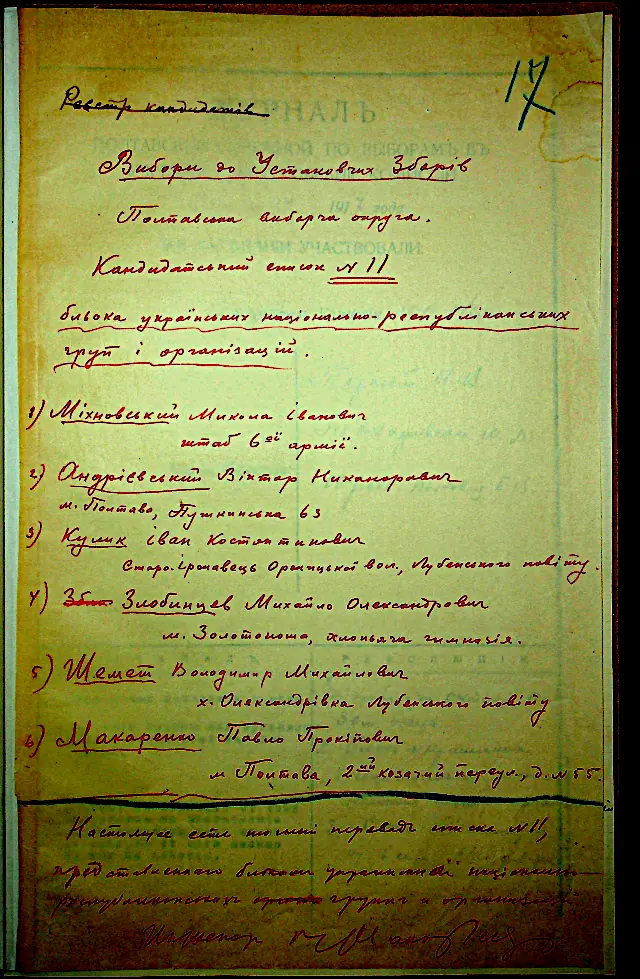 17
Реєстр кандидатів
Вибори до Установчих Зборів
Полтавська виборча округа.
Кандидатський список № 11
бльока українських національно-республіканських
груп і організацій.
1) Міхновський Микола Іванович
штаб 6ої армії.
2) Андрієвський Віктор Никанорович
м. Полтава, Пушкинська 63
3) Кулик Іван Костянтинович
Лубенського повіту.
4) Злобинцев Михайло Олександрович
м. Золотоноша, хлопьяча гимназія.
5) Шемет Володимир Михайлович
х. Олександрівка Лубенського повіту
6) Макаренко Павло Прокіпович
м Полтава, 2ий козачий переул., д. № 55.
Настоящее есть точный перевод списка № 11,
представленного блоком украинской национально-
республиканских групп и организаций